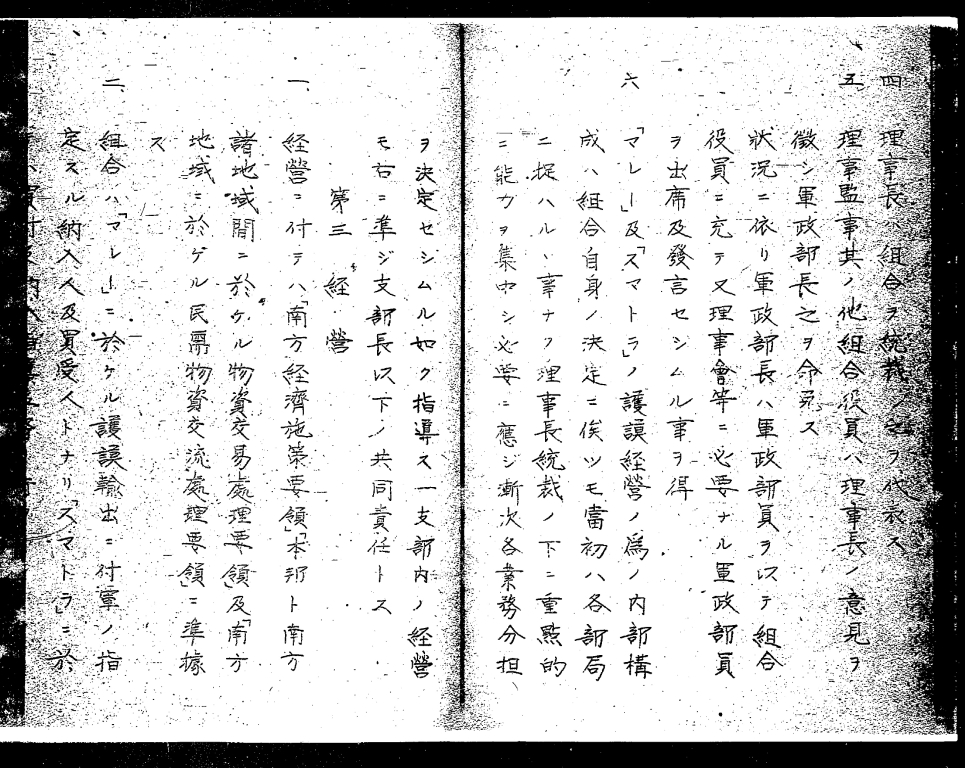 四 理事長ハ組合ヲ統裁シ之ヲ代表ス
五 理事監事其ノ他組合役員ハ理事長ノ意見ヲ
徴シ軍政部長之ヲ命免ス
狀況ニ依リ軍政部長ハ軍政部員ヲ以テ組合
役員ニ充テ又理事會等ニ必要ナル軍政部員
ヲ出席及發言セシムル事ヲ得
六 「マレー」及「スマトラ」ノ護謨経營ノ爲ノ内部構
成ハ組合自身ノ決定ニ俟ツモ當初ハ各部局
ニ捉ハルヽ事ナク理事長統裁ノ下ニ重點的
ニ能力ヲ集中シ必要ニ應ジ漸次各業務分担
ヲ決定セシムル如ク指導ス一支部内ノ経營
モ右ニ準ジ支部長以下ノ共同責任トス
第三 経營
一、経營ニ付テハ「南方経濟施策要領」「本邦ト南方
諸地域間ニ於ケル物資交易處理要領」及「南方
地域ニ於ケル民需物資交流處理要領」ニ準據
ス
二、組合ハ「マレー」ニ於ケル護謨輸出ニ付軍ノ指
定スル納入人及買受人トナリ「スマトラ」ニ於